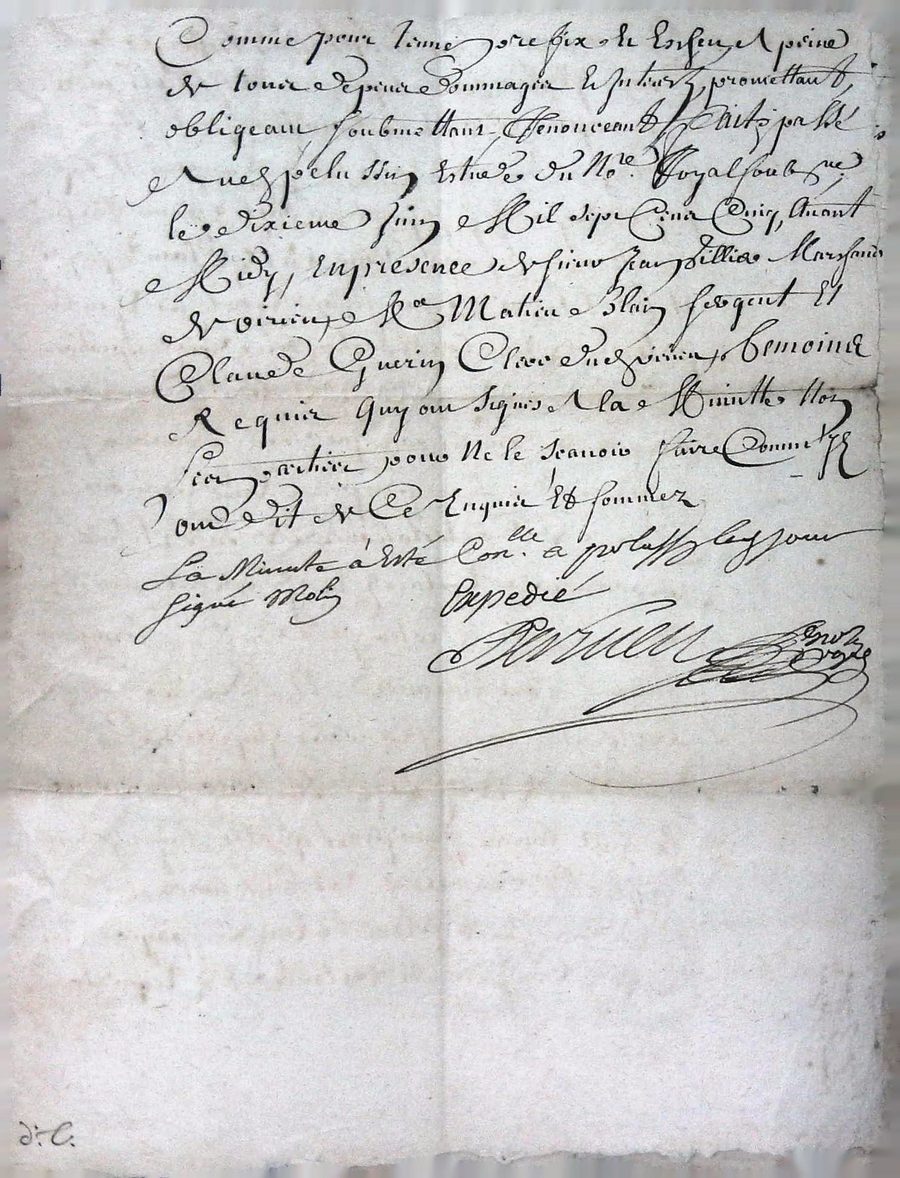 Comme pour terme prefix et escheu A peine
de tous depens dommages et Interetz, promettant,
obligeant soubmettant, Renonceant, fait & passé
Audt pelussin Estude du Nore. Royal soubsne.
le dixieme Juin Mil sept Cens Cinq, Avant
Midy, En presence de sieur Jean Marchand
de virieu, Me Mathieu Blain sergent Et
Claude Guerin Clerc dudt virieu, temoins
Requis Quy ont signés A la Minutte Non
les parties pour Ne le scavoir faire Comm'Ilz
ont dit de Ce Enquis Et sommez
La Minute à esté Conlle. a pelussin les jour
signé Molin Expedié
Royal
d. C.